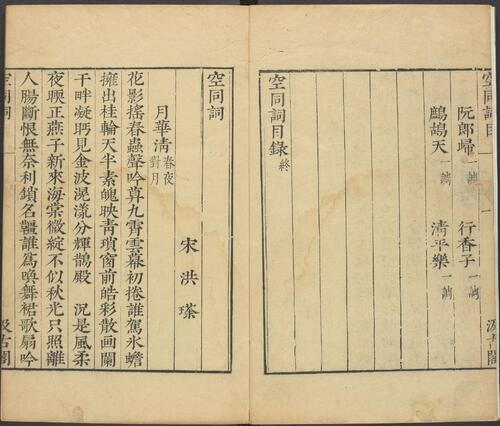 空同詞目 一 汲古閣
阮郎歸一調 行香子一調
鷓鴣天一調 清平樂一調
空同詞目錄終
空同詞
宋 洪瑹
月華清春夜對月
花影搖春蟲聲吟莫九霄雲幕初捲誰駕氷蟾
擁出桂輪天半素魄映靑瑣窗前皓彩散画闌
干畔凝眄見金波滉漾分輝鵲殿 況是風柔
夜暖正燕子新來海棠微綻不似秋光只照離
人腸斷恨無奈利鎖名韁誰爲喚舞裙歌扇吟
空同詞 一 汲古閣